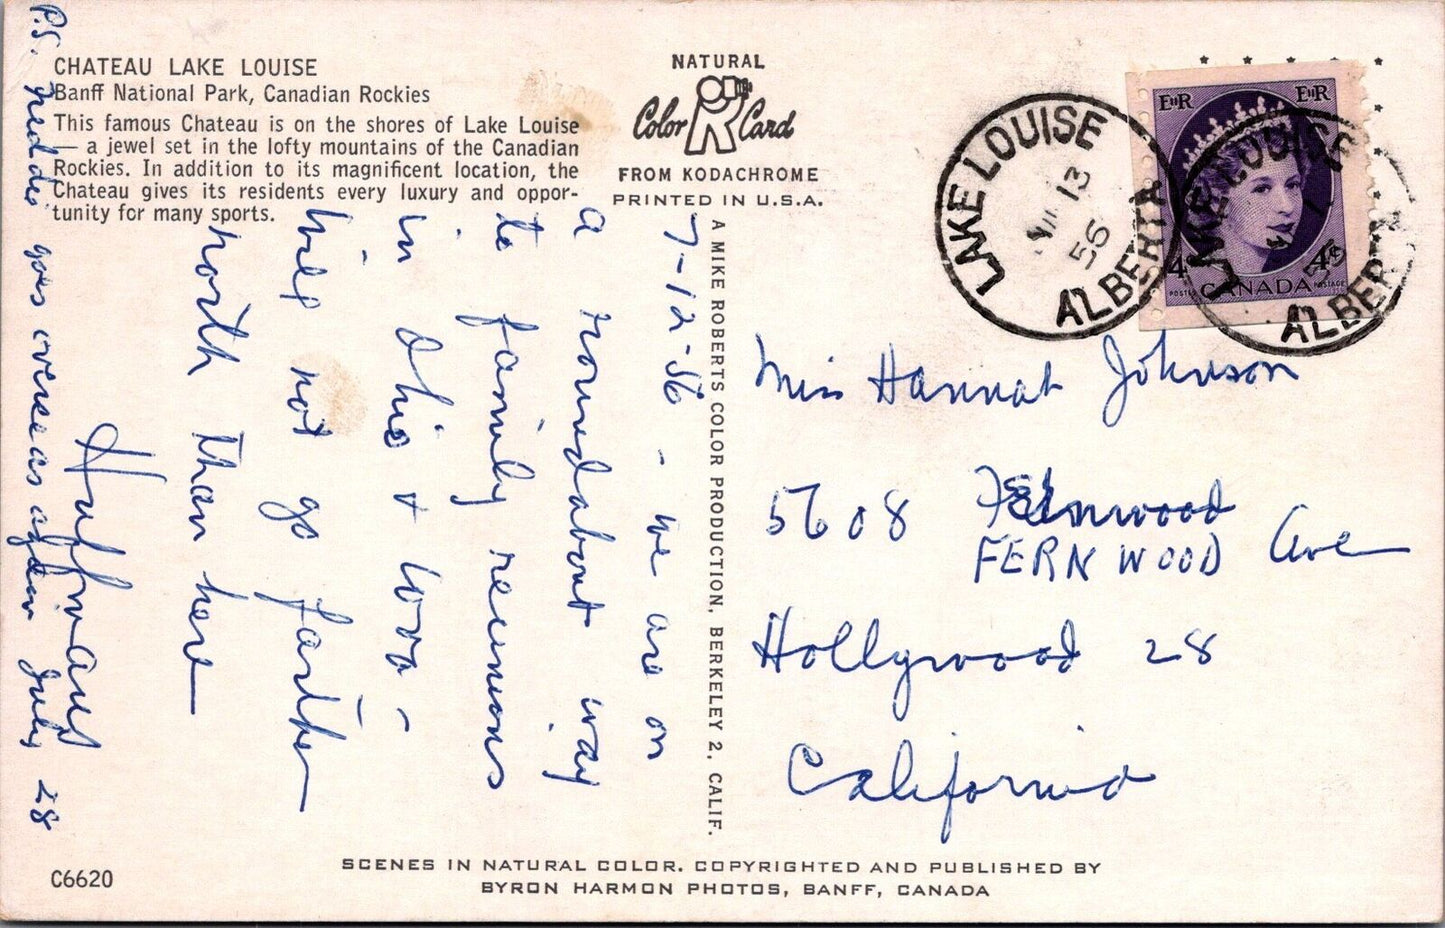 CHATEAU LAKE LOUISE
Banff National Park, Canadian Rockies
This famous Chateau is on the shores of Lake Louise
— a jewel set in the lofty mountains of the Canadian
Rockies. In addition to its magnificent location, the
Chateau gives its residents every luxury and oppor-
tunity for many sports.
NATURAL
Color Card
FROM KODACHROME
PRINTED IN U.S.A.
LAKE LOUISE
13
56
ALBERTA
EIIR EIIR
4 4¢
POSTES CANADA POSTAGE
LAKE LOUISE
ALBERTA
7-12-56 - we are on
a roundabout way
to family reunions
in Ohio + Iowa -
will not go farther
north than here
P.S. goes overseas again July 28
A MIKE ROBERTS COLOR PRODUCTION, BERKELEY 2, CALIF.
Miss Hannah Johnson
5608 Fernwood
FERNWOOD Ave
Hollywood 28
California
C6620
SCENES IN NATURAL COLOR. COPYRIGHTED AND PUBLISHED BY
BYRON HARMON PHOTOS, BANFF, CANADA